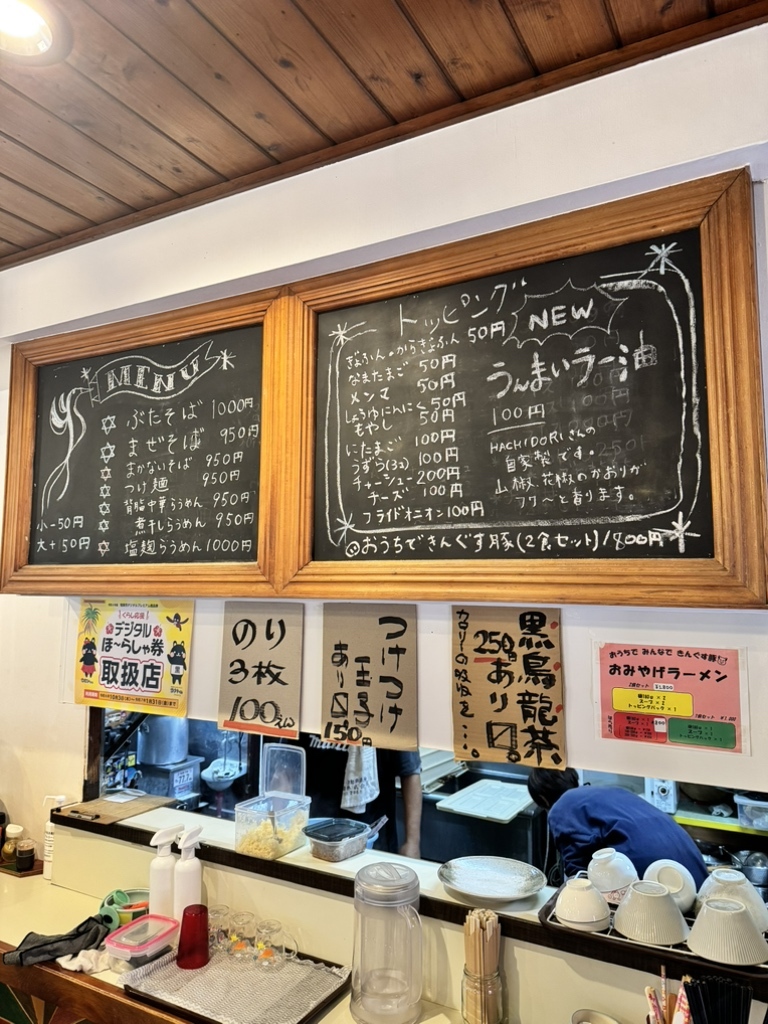 MENU
ぶたそば 1000円
まぜそば 950円
まかないそば 950円
つけ麺 950円
背脂中華らうめん 950円
煮干しらうめん 950円
塩麹らうめん 1000円
小-50円
大+150円
トッピング
ぎょふんのからぎょふん 50円
なまたまご 50円
メンマ 50円
しょうゆにんにく 50円
もやし 50円
にたまご 100円
うずら(3コ) 100円
チャーシュー 200円
チーズ 100円
フライドオニオン 100円
NEW
うんまいラー油
100円
HACHIDORIさんの
自家製です。
山椒、花椒のかおりが
フワ〜と香ります。
おうちできんぐす豚(2食セット)/1800円
くらし応援
デジタル
ほ〜らしゃ券
取扱店
のり
3枚
100えん
つけつけ
玉子
あり〼
150円
黒烏龍茶
250円あり〼。
カロリーの吸収を…
おうちで みんなで きんぐす豚
おみやげラーメン